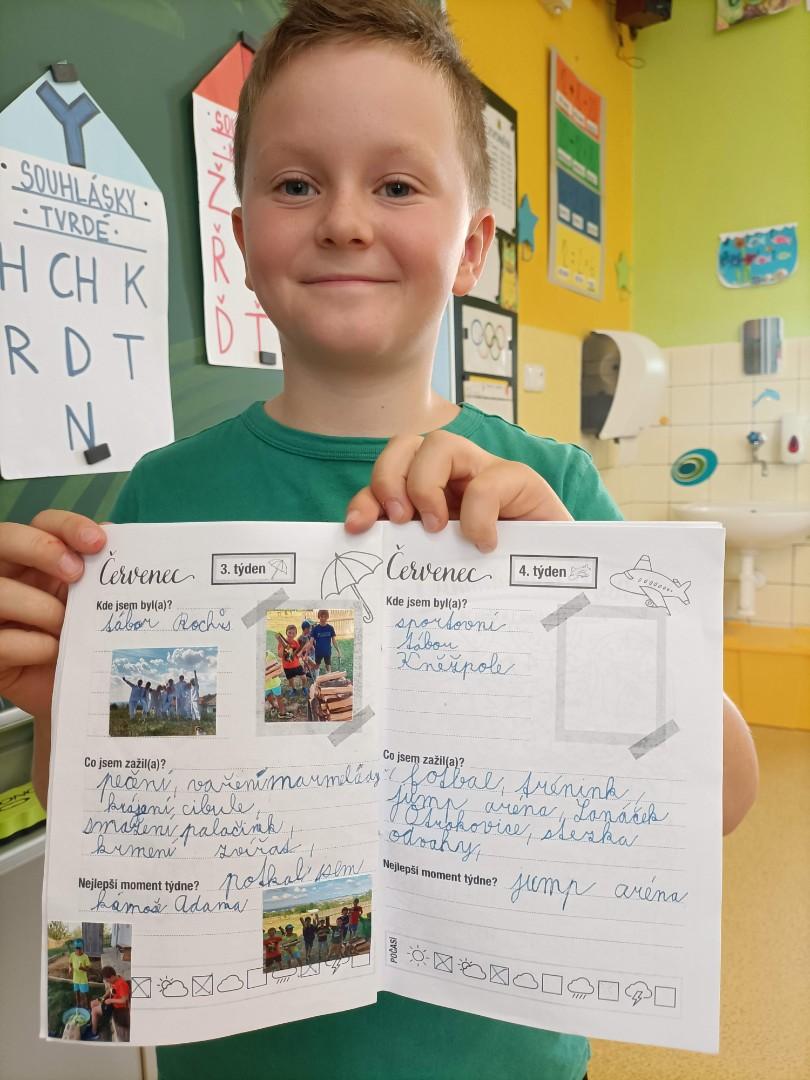 Y
SOUHLÁSKY
TVRDÉ
H CH K
R D T
N
SO
Ž
Ř
Ď Ť
Červenec
3. týden
Kde jsem byl(a)?
tábor Rochůs
Co jsem zažil(a)?
pečení, vaření marmelády
krájení, cibule,
smažení palačink,
krmení zvířat,
Nejlepší moment týdne? potkal jsem
kámoše Adama
Červenec
4. týden
Kde jsem byl(a)?
sportovní
tábor
Kněžpole
Co jsem zažil(a)?
fotbal, trénink,
jump aréna, Lanáček
Otrokovice, stezka
odvahy,
Nejlepší moment týdne? jump aréna
POČASÍ